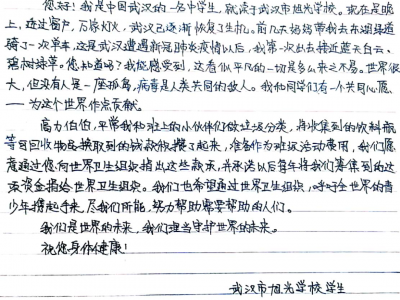 您好！我是中国武汉的一名中学生，就读于武汉市旭光学校。现在是晚
上，透过窗户，万家灯火，武汉已逐渐恢复了生机。前几天妈妈带我去东湖绿道
骑了一次单车，这是武汉遭遇新冠肺炎疫情以后，我第一次出去接近蓝天白云、
绿树绿草。您知道吗？我能感受到，这看似平凡的一切是多么来之不易。世界很
大，但没有人是一座孤岛，病毒是人类共同的敌人。我和同学们有一个共同心愿
——为这个世界作点贡献。
高力伯伯，平常我和班上的小伙伴们做垃圾分类，将收集到的饮料瓶
等可回收物品换取到的钱款积攒了起来，准备作为班级活动费用，我们愿
意通过您向世界卫生组织捐出这些款，并承诺以后每年将我们筹集到的这
项资金捐给世界卫生组织。我们也希望通过世界卫生组织，呼吁全世界的青
少年携起手来，尽我们所能，努力帮助需要帮助的人们。
我们是世界的未来，我们理当守护世界的未来。
祝您身体健康！
武汉市旭光学校学生